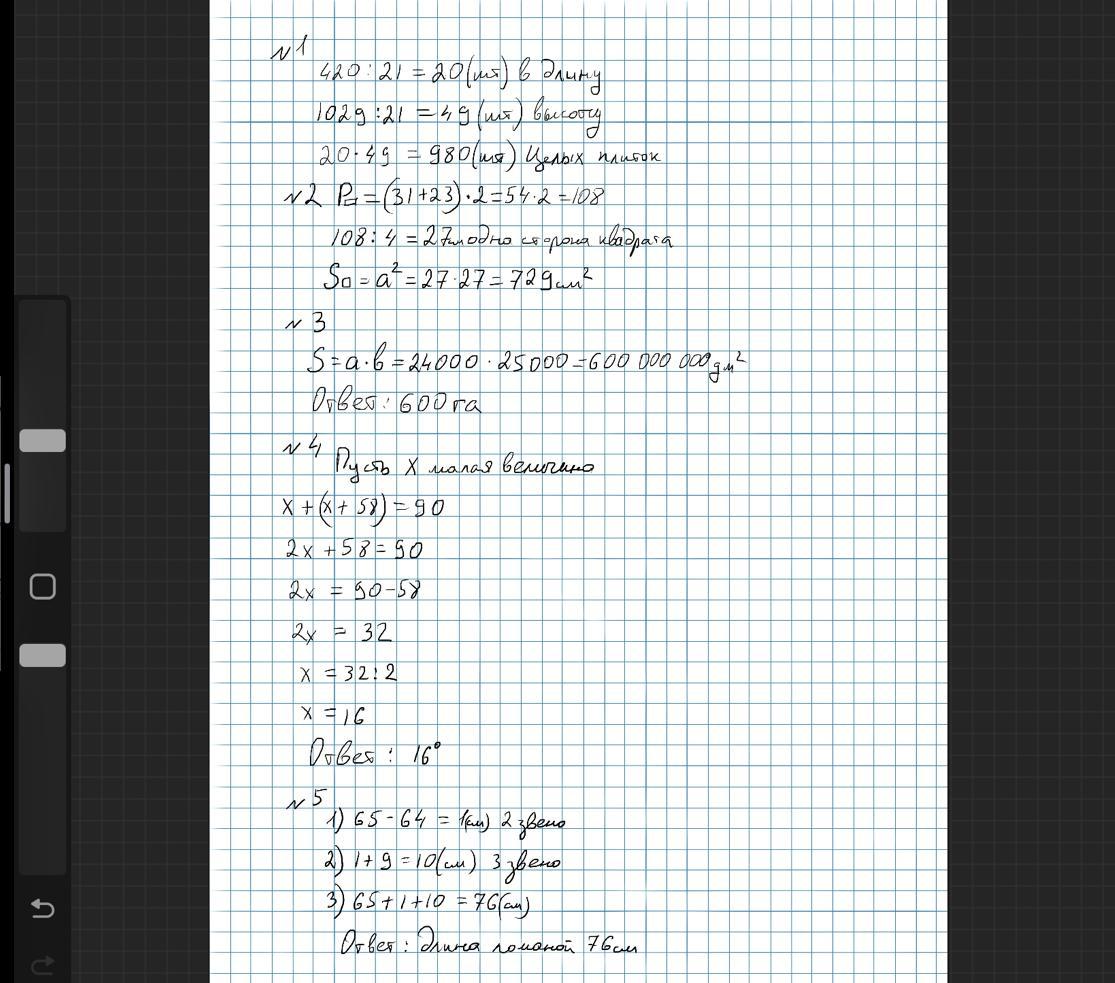 №1
420:21 = 20(шт) в длину
1029:21 = 49(шт) высоту
20·49 = 980(шт) Целых плиток
№2 P▭=(31+23)·2=54·2=108
108:4 = 27 одна сторона квадрата
S□=a²=27·27=729см²
№3
S=a·b=24000·25000=600 000 000дм²
Ответ: 600га
№4
Пусть X малая величина
x+(x+58)=90
2x+58=90
2x = 90-58
2x = 32
x =32:2
x =16
Ответ: 16°
№5
1) 65-64 = 1(см) 2 звено
2) 1+9=10(см) 3 звено
3) 65+1+10 =76(см)
Ответ: длина ломаной 76см